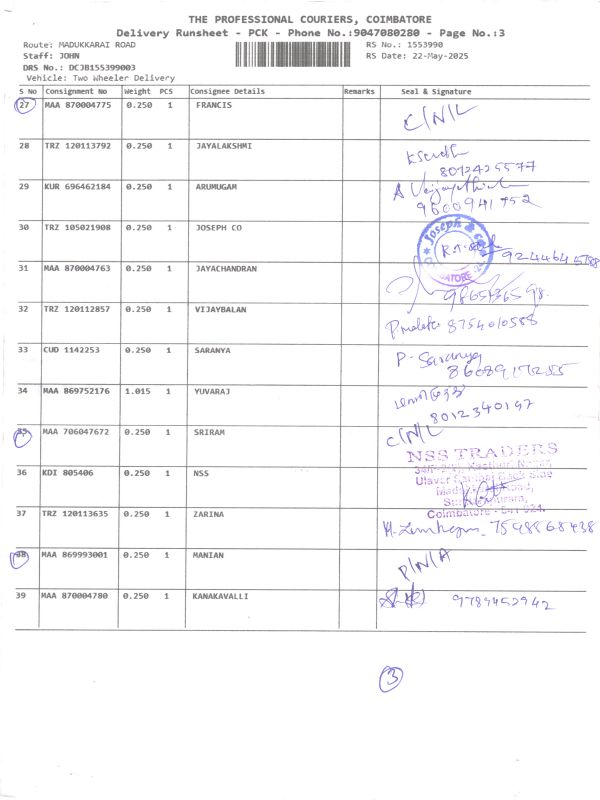 THE PROFESSIONAL COURIERS, COIMBATORE
Delivery Runsheet - PCK - Phone No.:9047080280 - Page No.:3
Route: MADUKKARAI ROAD RS No.: 1553990
Staff: JOHN RS Date: 22-May-2025
DRS No.: DCJB155399003
Vehicle: Two Wheeler Delivery
S No Consignment No Weight PCS Consignee Details Remarks Seal & Signature
27 MAA 870004775 0.250 1 FRANCIS C/N/L
28 TRZ 120113792 0.250 1 JAYALAKSHMI
8012425577
29 KUR 696462184 0.250 1 ARUMUGAM
9600941752
30 TRZ 105021908 0.250 1 JOSEPH CO Joseph &
31 MAA 870004763 0.250 1 JAYACHANDRAN
32 TRZ 120112857 0.250 1 VIJAYBALAN 8754010588
33 CUD 1142253 0.250 1 SARANYA P. Saranya
34 MAA 869752176 1.015 1 YUVARAJ
8012340197
35 MAA 706047672 0.250 1 SRIRAM C/N/L
NSS TRADERS
36 KDI 805406 0.250 1 NSS
Coimbatore - 641 024.
37 TRZ 120113635 0.250 1 ZARINA 7598868438
38 MAA 869993001 0.250 1 MANIAN P/N/A
39 MAA 870004780 0.250 1 KANAKAVALLI 9789452942
3